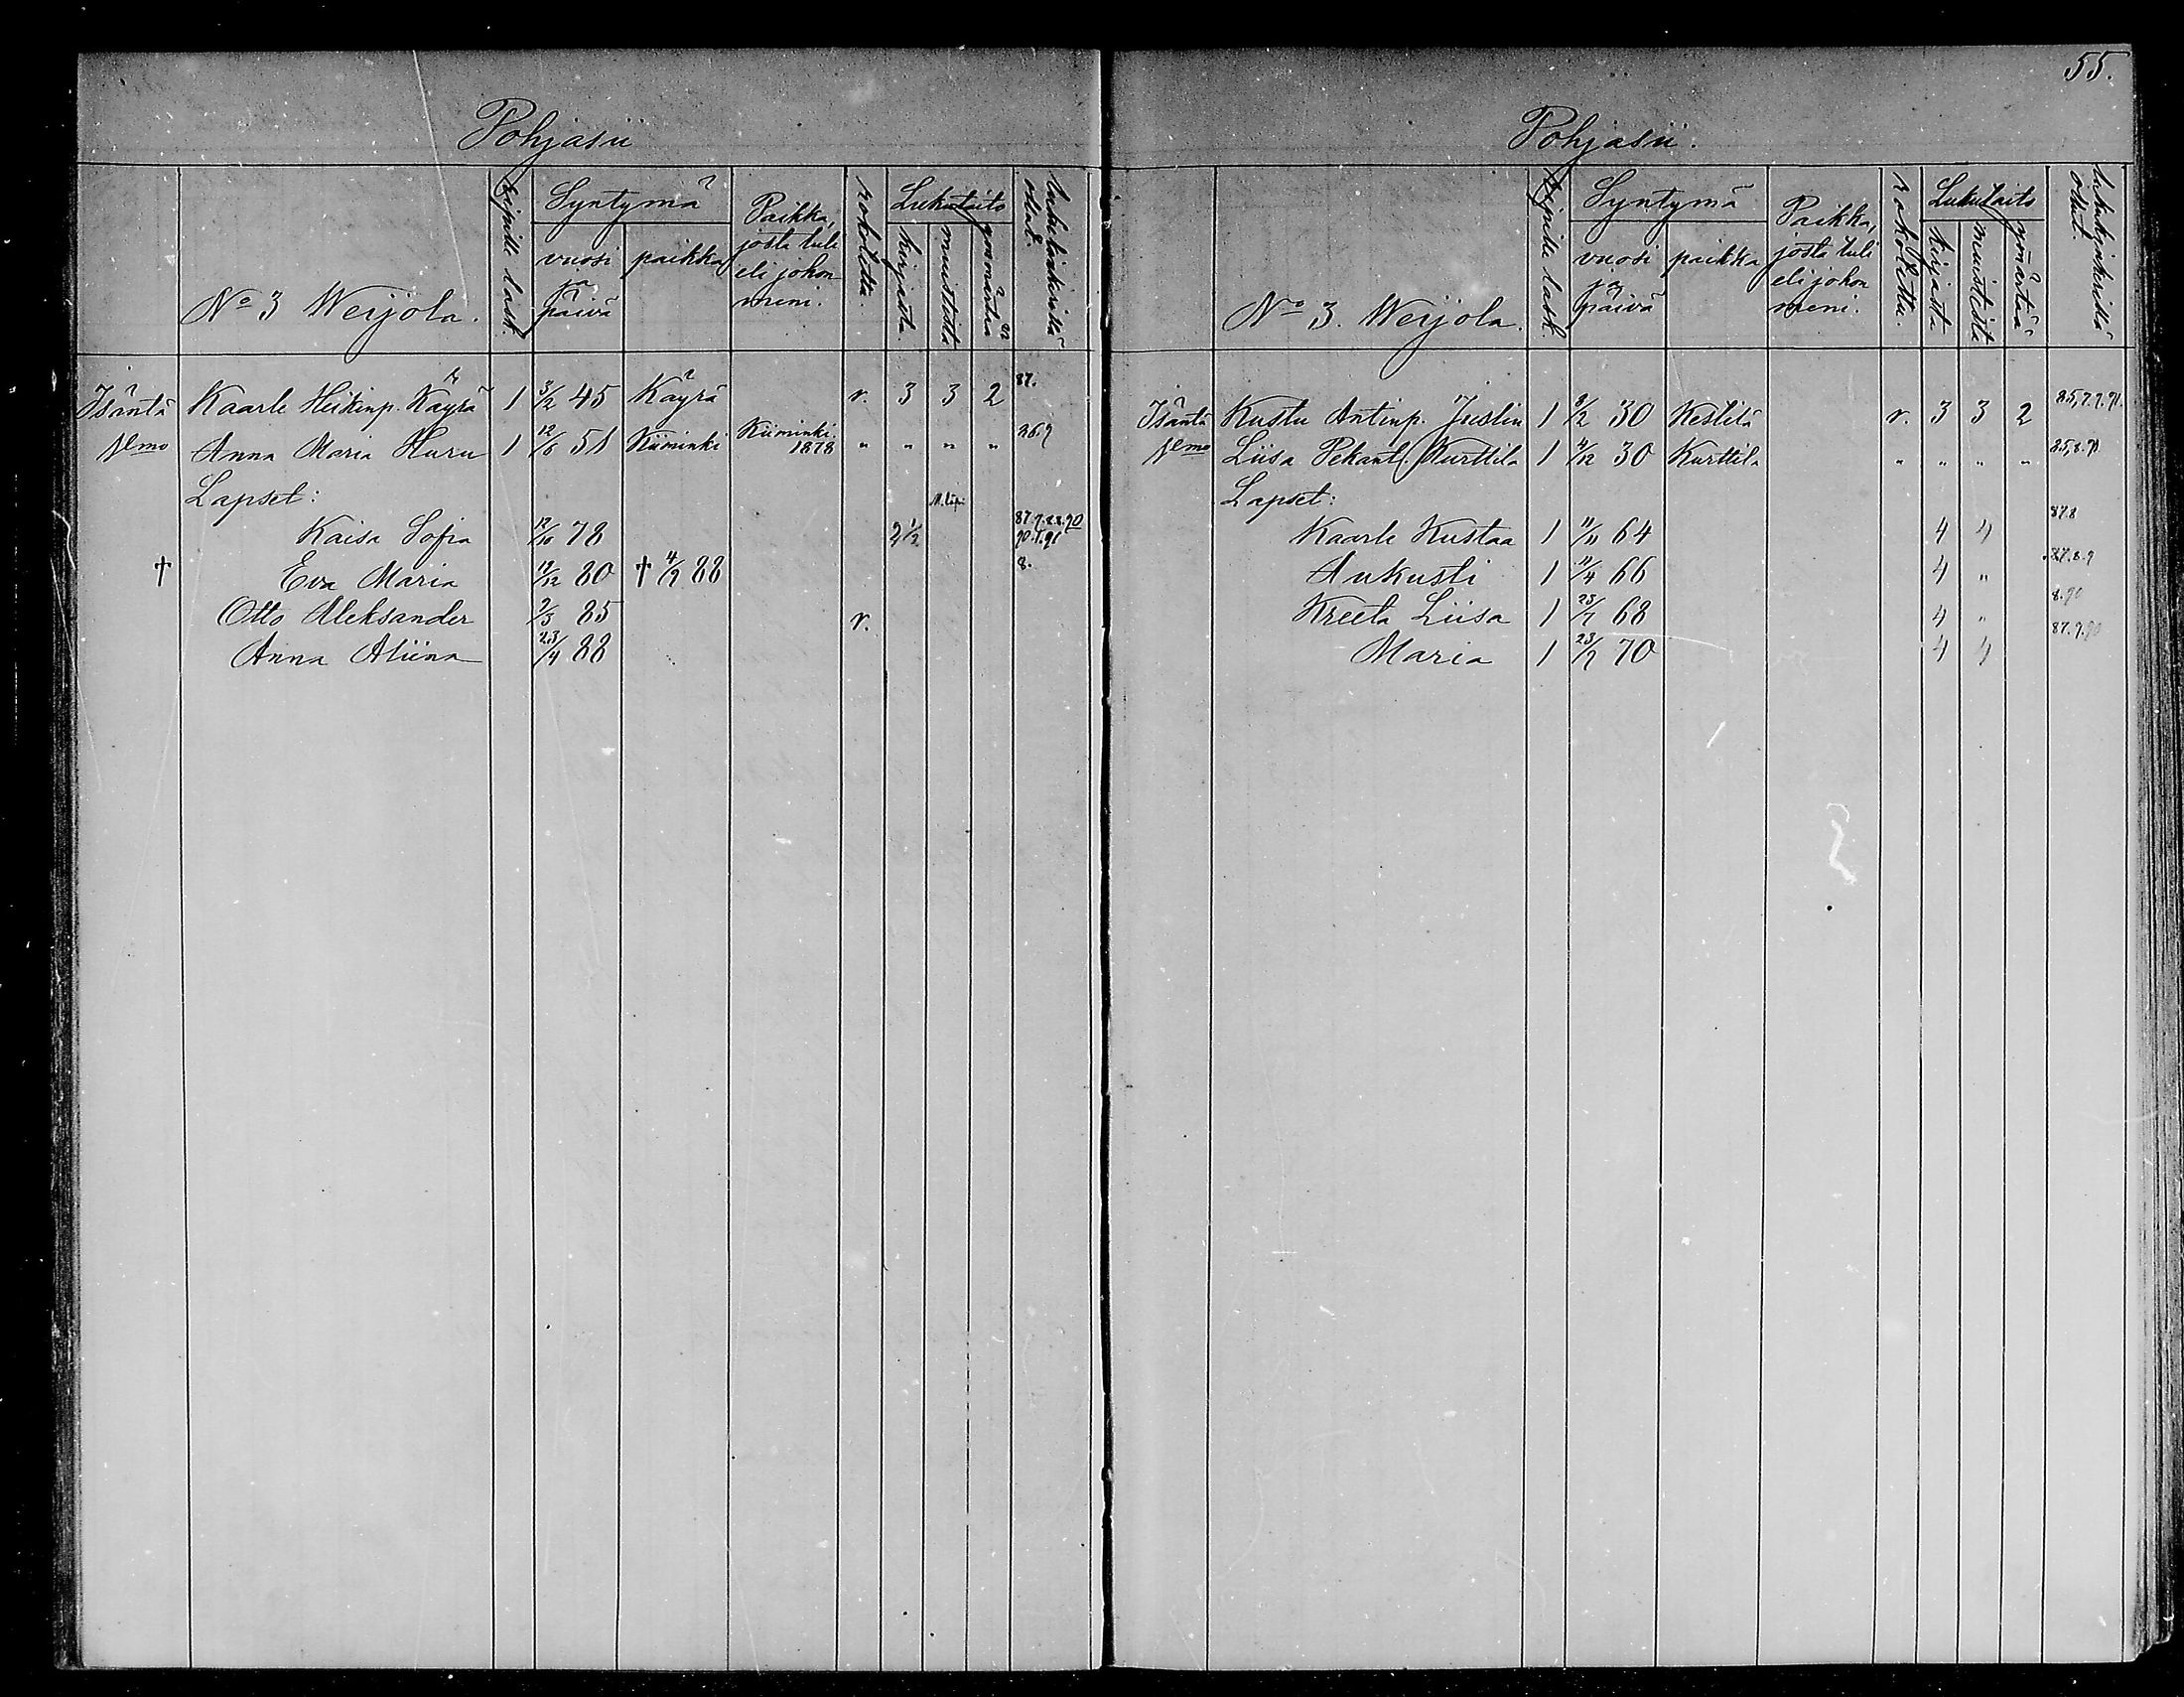 55.
Pohjasii
No 3 Werjola.
Ripille lask.
Syntymä
vuosi ja päivä
paikka
Paikka, josta tuli eli johon meni.
rokotettu.
Lukutaito
kirjasta.
muistista
ymmärtää
lukukinkerillä ollut.
Isäntä Kaarle Heikinp. Käyrä 1 3/2 45 Käyrä r. 3 3 2 87.
Vmo Anna Maria Huru 1 12/6 51 Kiiminki Kiiminki 1878 " " " "
Lapset:
Kaisa Sofia 12/10 78 2 1/2 87.9.88.90
90.1.91
† Eva Maria 12/12 80 † 4/9 88 8.
Otto Aleksander 2/3 85 r.
Anna Aliina 23/4 88
Pohjasii.
No 3. Werjola.
Ripille lask.
Syntymä
vuosi ja päivä
paikka
Paikka, josta tuli eli johon meni.
rokotettu.
Lukutaito
kirjasta
muistista
ymmärtää
lukukinkerillä ollut.
Isäntä Kustu Antinp. Juslin 1 9/2 30 Kestilä r. 3 3 2 85,7.9.91.
Vmo Liisa Pekant. Kurttila 1 4/12 30 Kurttila " " " " 85,8.91
Lapset:
Kaarle Kustaa 1 11/11 64 4 4 87.8
Aukusti 1 11/4 66 4 " 87.8.9
Kreeta Liisa 1 23/7 68 4 " 8.90
Maria 1 23/7 70 4 4 87.9.90